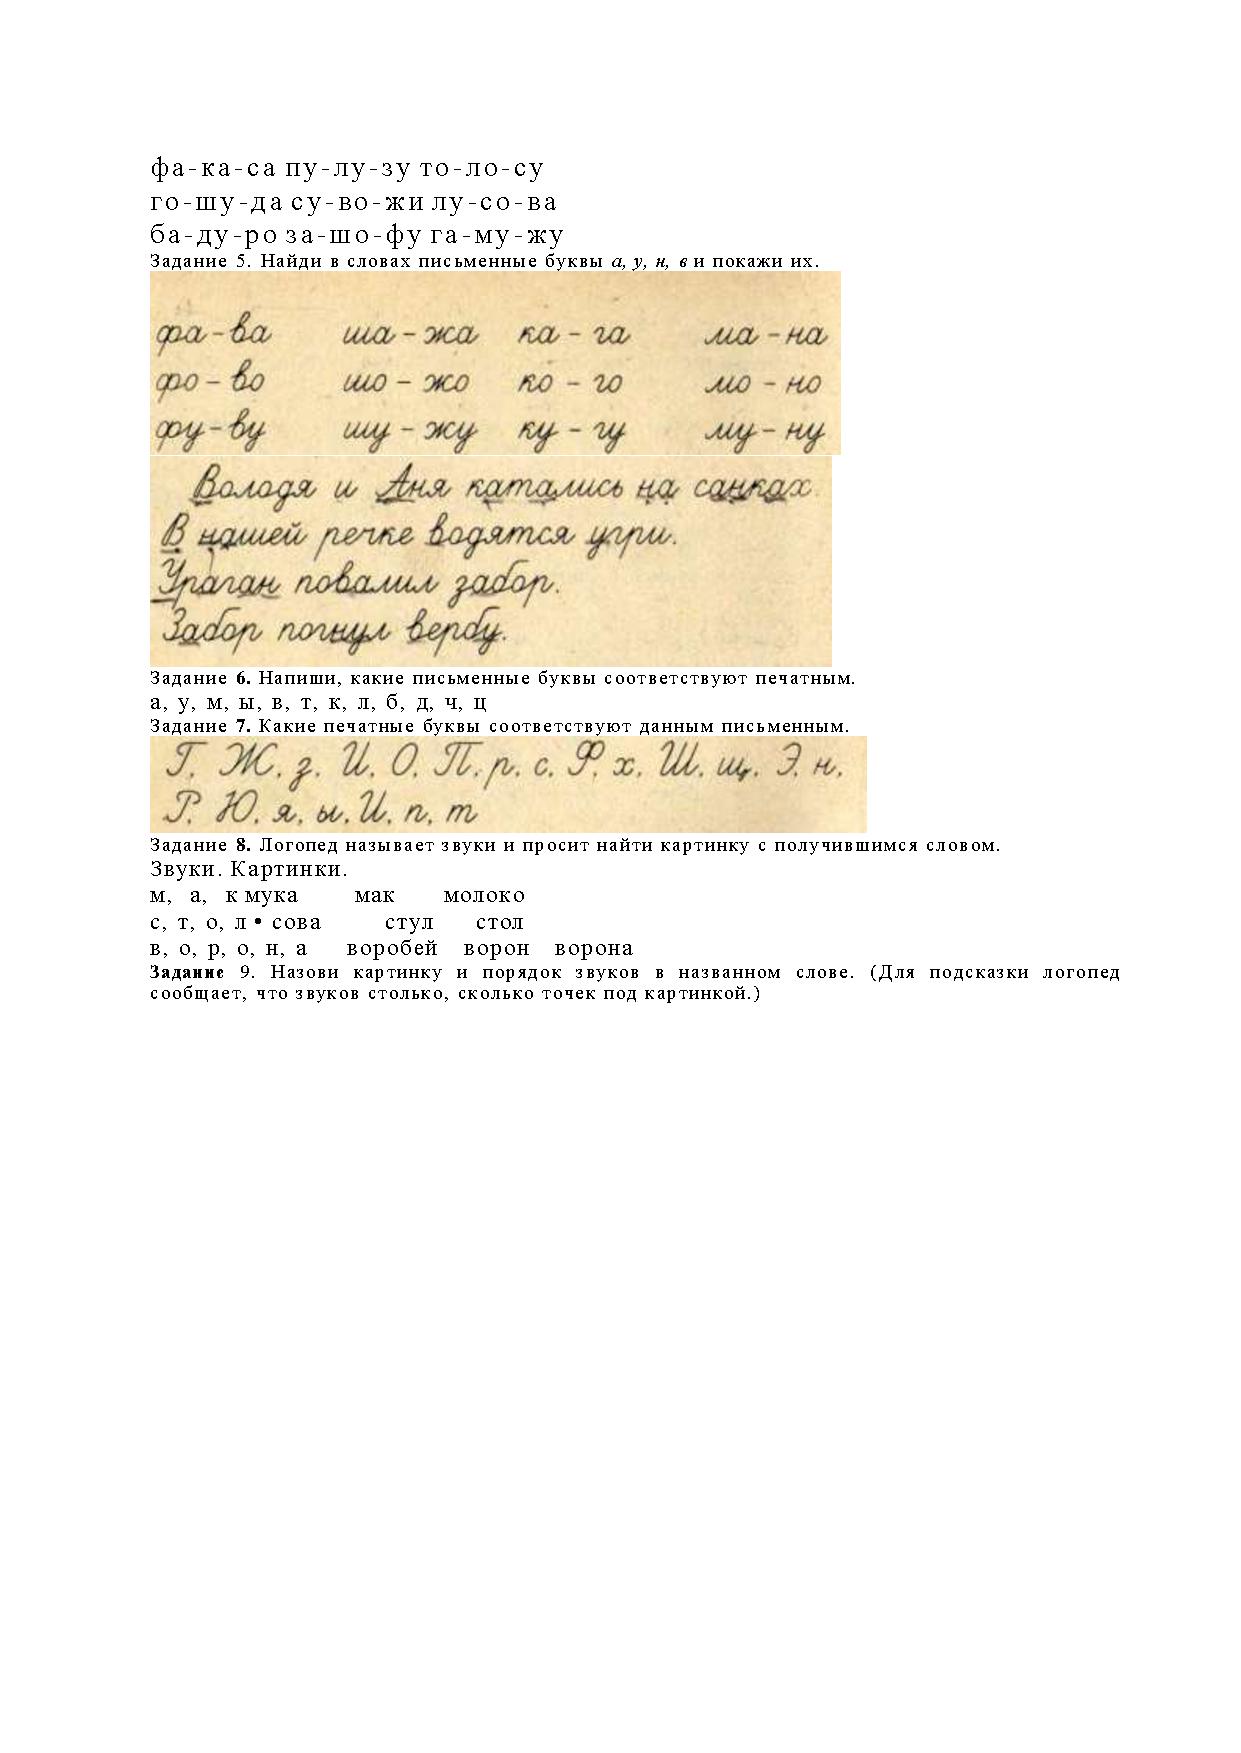 фа-ка-са пу-лу-зу то-ло-су
го-шу-да су-во-жи лу-со-ва
ба-ду-ро за-шо-фу га-му-жу
Задание 5. Найди в словах письменные буквы а, у, н, в и покажи их.
фа-ва ша-жа ка-га ма-на
фо-во шо-жо ко-го мо-но
фу-ву шу-жу ку-гу му-ну
Володя и Аня катались на санках.
В нашей речке водятся угри.
Ураган повалил забор.
Забор погнул вербу.
Задание 6. Напиши, какие письменные буквы соответствуют печатным.
а, у, м, ы, в, т, к, л, б, д, ч, ц
Задание 7. Какие печатные буквы соответствуют данным письменным.
Г, Ж, з, И, О, П, р, с, Ф, х, Ш, щ, Э, н,
Р, Ю, я, ы, И, п, т
Задание 8. Логопед называет звуки и просит найти картинку с получившимся словом.
Звуки. Картинки.
м, а, к мука мак молоко
с, т, о, л • сова стул стол
в, о, р, о, н, а воробей ворон ворона
Задание 9. Назови картинку и порядок звуков в названном слове. (Для подсказки логопед
сообщает, что звуков столько, сколько точек под картинкой.)